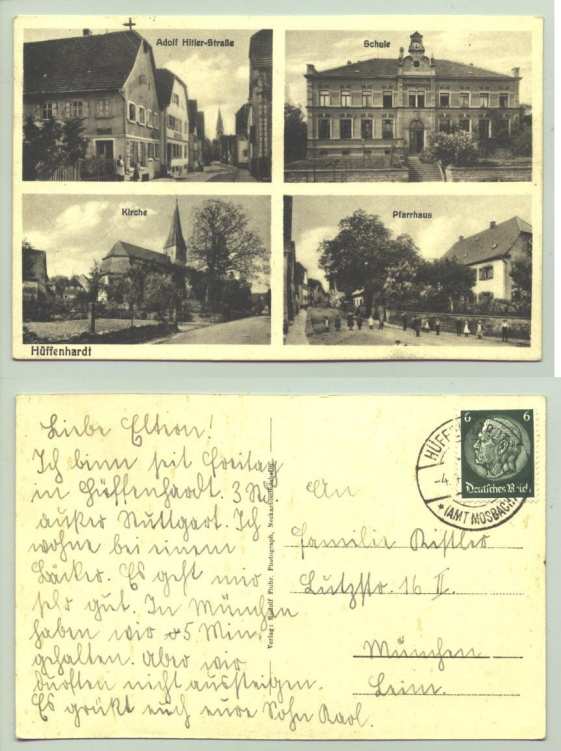 Adolf Hitler-Straße
Schule
Kirche
Pfarrhaus
Hüffenhardt
Liebe Eltern!
Ich binn seit Freitag
in Hüffenhardt. 3 Std
außer Stuttgart. Ich
wohne bei einem
Bäcker. Es geht mir
sehr gut. In München
haben wir 85 Min.
gehalten. Aber wir
durften nicht aussteigen.
Es grüßt euch eure Sohn Karl.
Verlag: Rudolf Fuhr, Photograph,
An
Familie Ristler
Lutzstr. 16 II.
München
Leim.
6 6
Deutsches Reich
HÜFF
-4.
* (AMT MOSBACH)